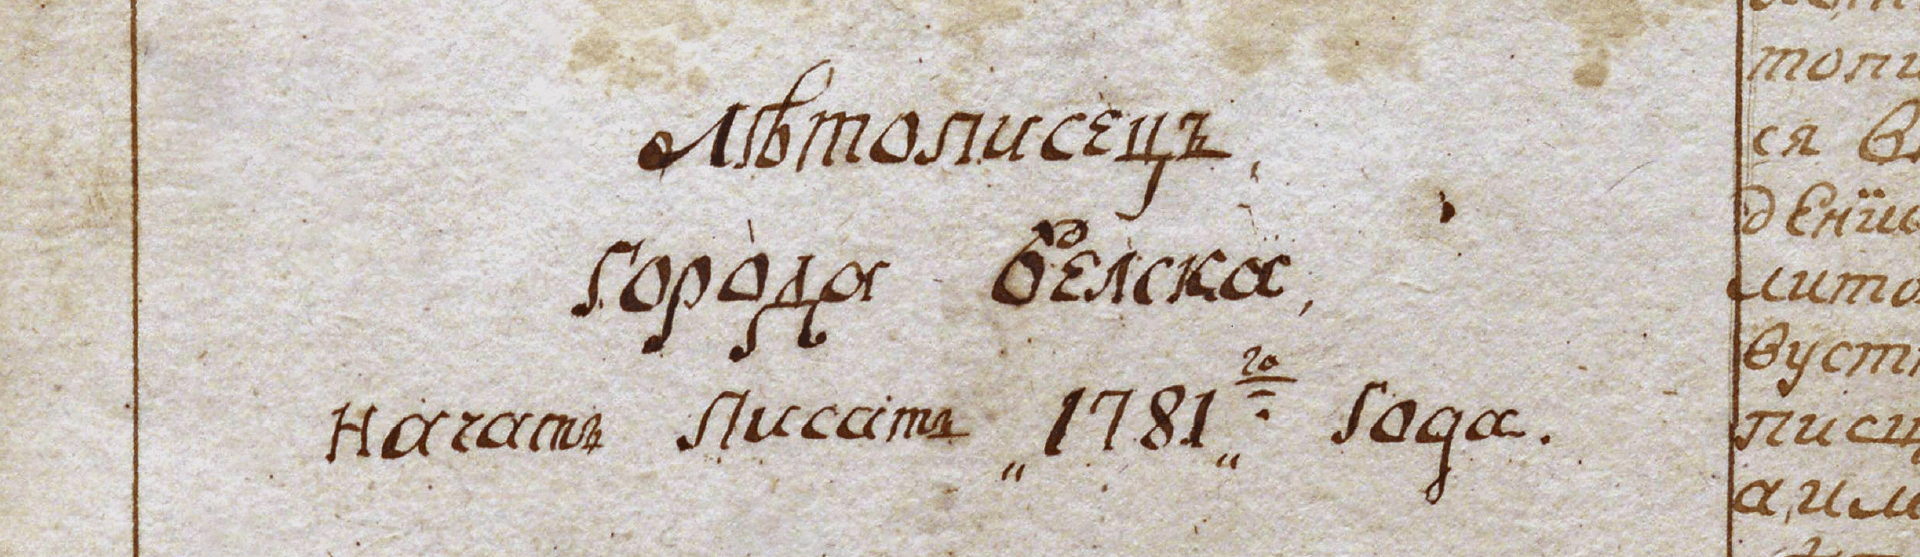 Лѣтописецъ,
города белска,
Начатъ писатъ „1781„го года.
топи
ся в
денїи
лито
вуст
писц
а,им